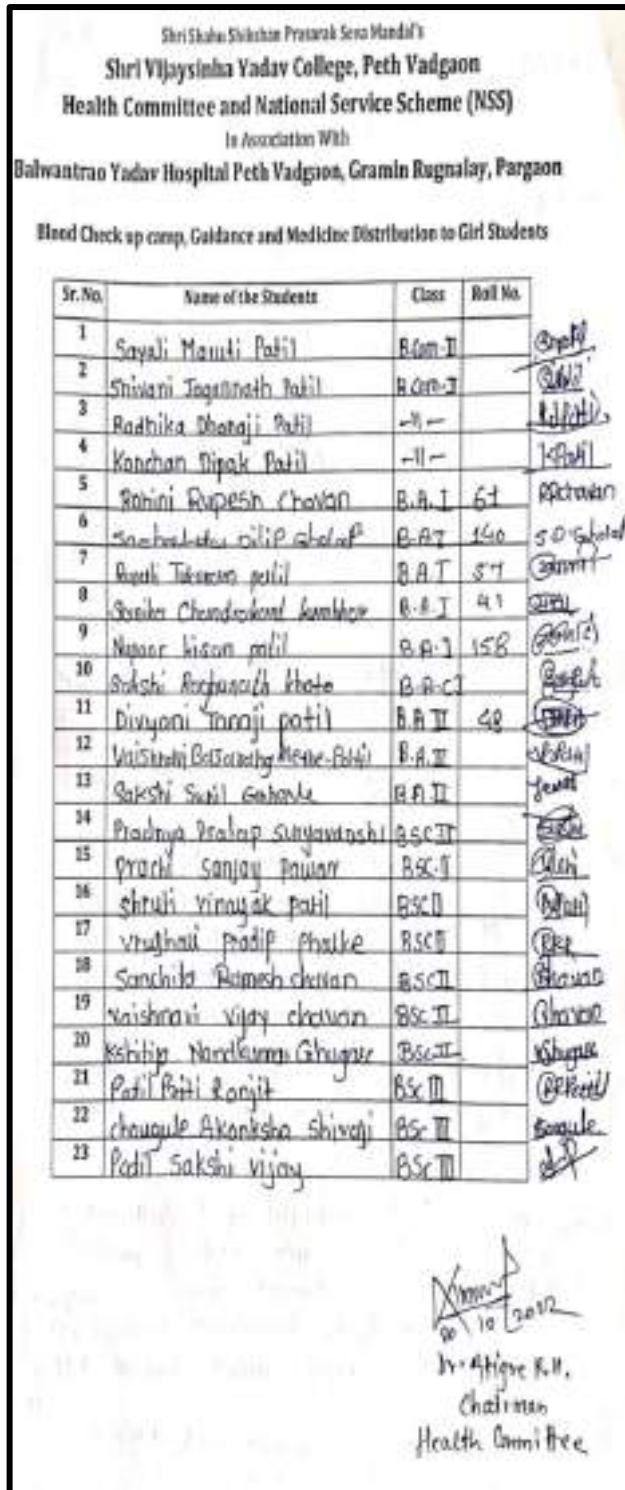 Shri Shahu Shikshan Prasarak Seva Mandal's
Shri Vijaysinha Yadav College, Peth Vadgaon
Health Committee and National Service Scheme (NSS)
In Association With
Balwantrao Yadav Hospital Peth Vadgaon, Gramin Rugnalay, Pargaon
Blood Check up camp, Guidance and Medicine Distribution to Girl Students
Sr. No. Name of the Students Class Roll No.
1 Sayali Maruti Patil B.Com-II
2 Shivani Jagannath Patil B.Com-I
3 Radhika Dhanaji Patil -11-
4 Kanchan Dipak Patil -11- K.Patil
5 Rohini Rupesh Chavan B.A.I 61 RRchavan
6 Dilip Gholap B.A I 140 S.D.Gholap
7 Rupali Tukaram patil B.A I 57
8 Sanika Chandrakant kumbhar B.A.I 41
9 Nupoor kisan patil B.A.I 158
10 Sakshi Raghunath khot
11 Divyani Tanaji patil B.A II 48
12 Vaishnavi B.A.II
13 Sakshi Sunil B.A.II
14 Pradnya Pratap Suryavanshi BSC II
15 prachi sanjay pawar BSC-II
16 shruti vinayak patil BSC II
17 vrushali pradip phalke BSC II
18 Sanchita Ramesh chavan BSC II Chavan
19 vaishnavi vijay chavan BSC II Chavan
20 Kshitija Nandkumar Ghugare BSC II
21 Patil Priti Ranjit BSc III PRPatil
22 chougule Akanksha Shivaji BSc III
23 Patil Sakshi vijay BSc III
20/10/2022
Dr. Atigre R.H.
Chairman
Health Committee